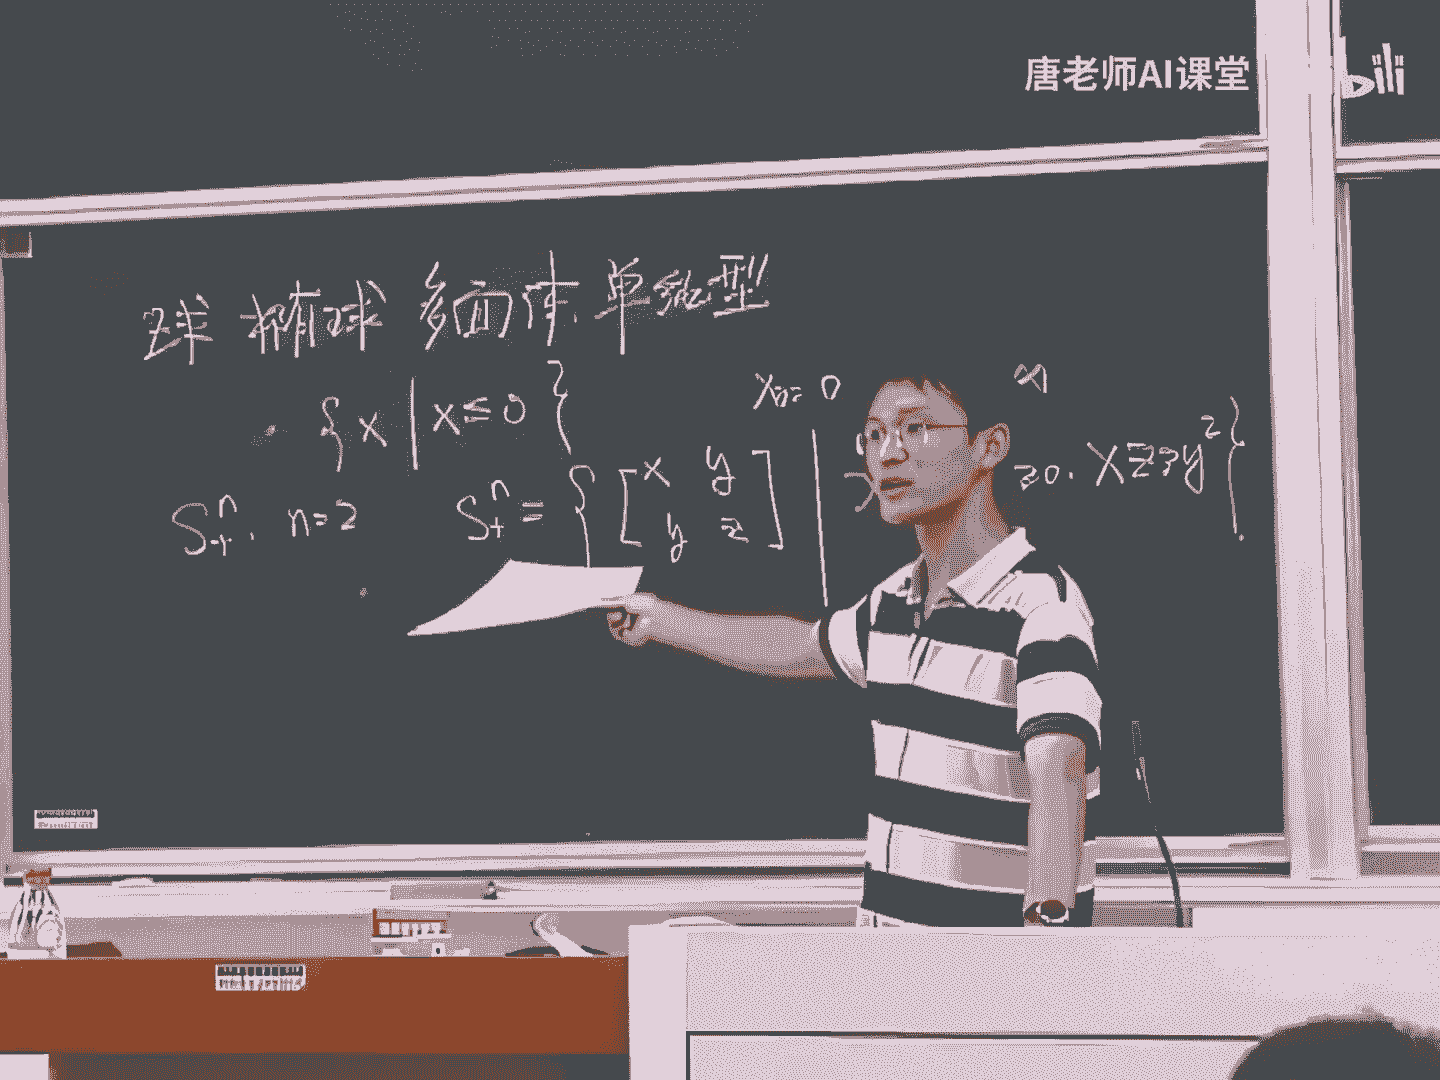 唐老师AI课堂 bilibili
球 椭球 多面体 单纯型
{x | x≤0}
S₊ⁿ. n=2 S₊ⁿ = { [ x y
y z ] | ≥0. xz≥y² }.